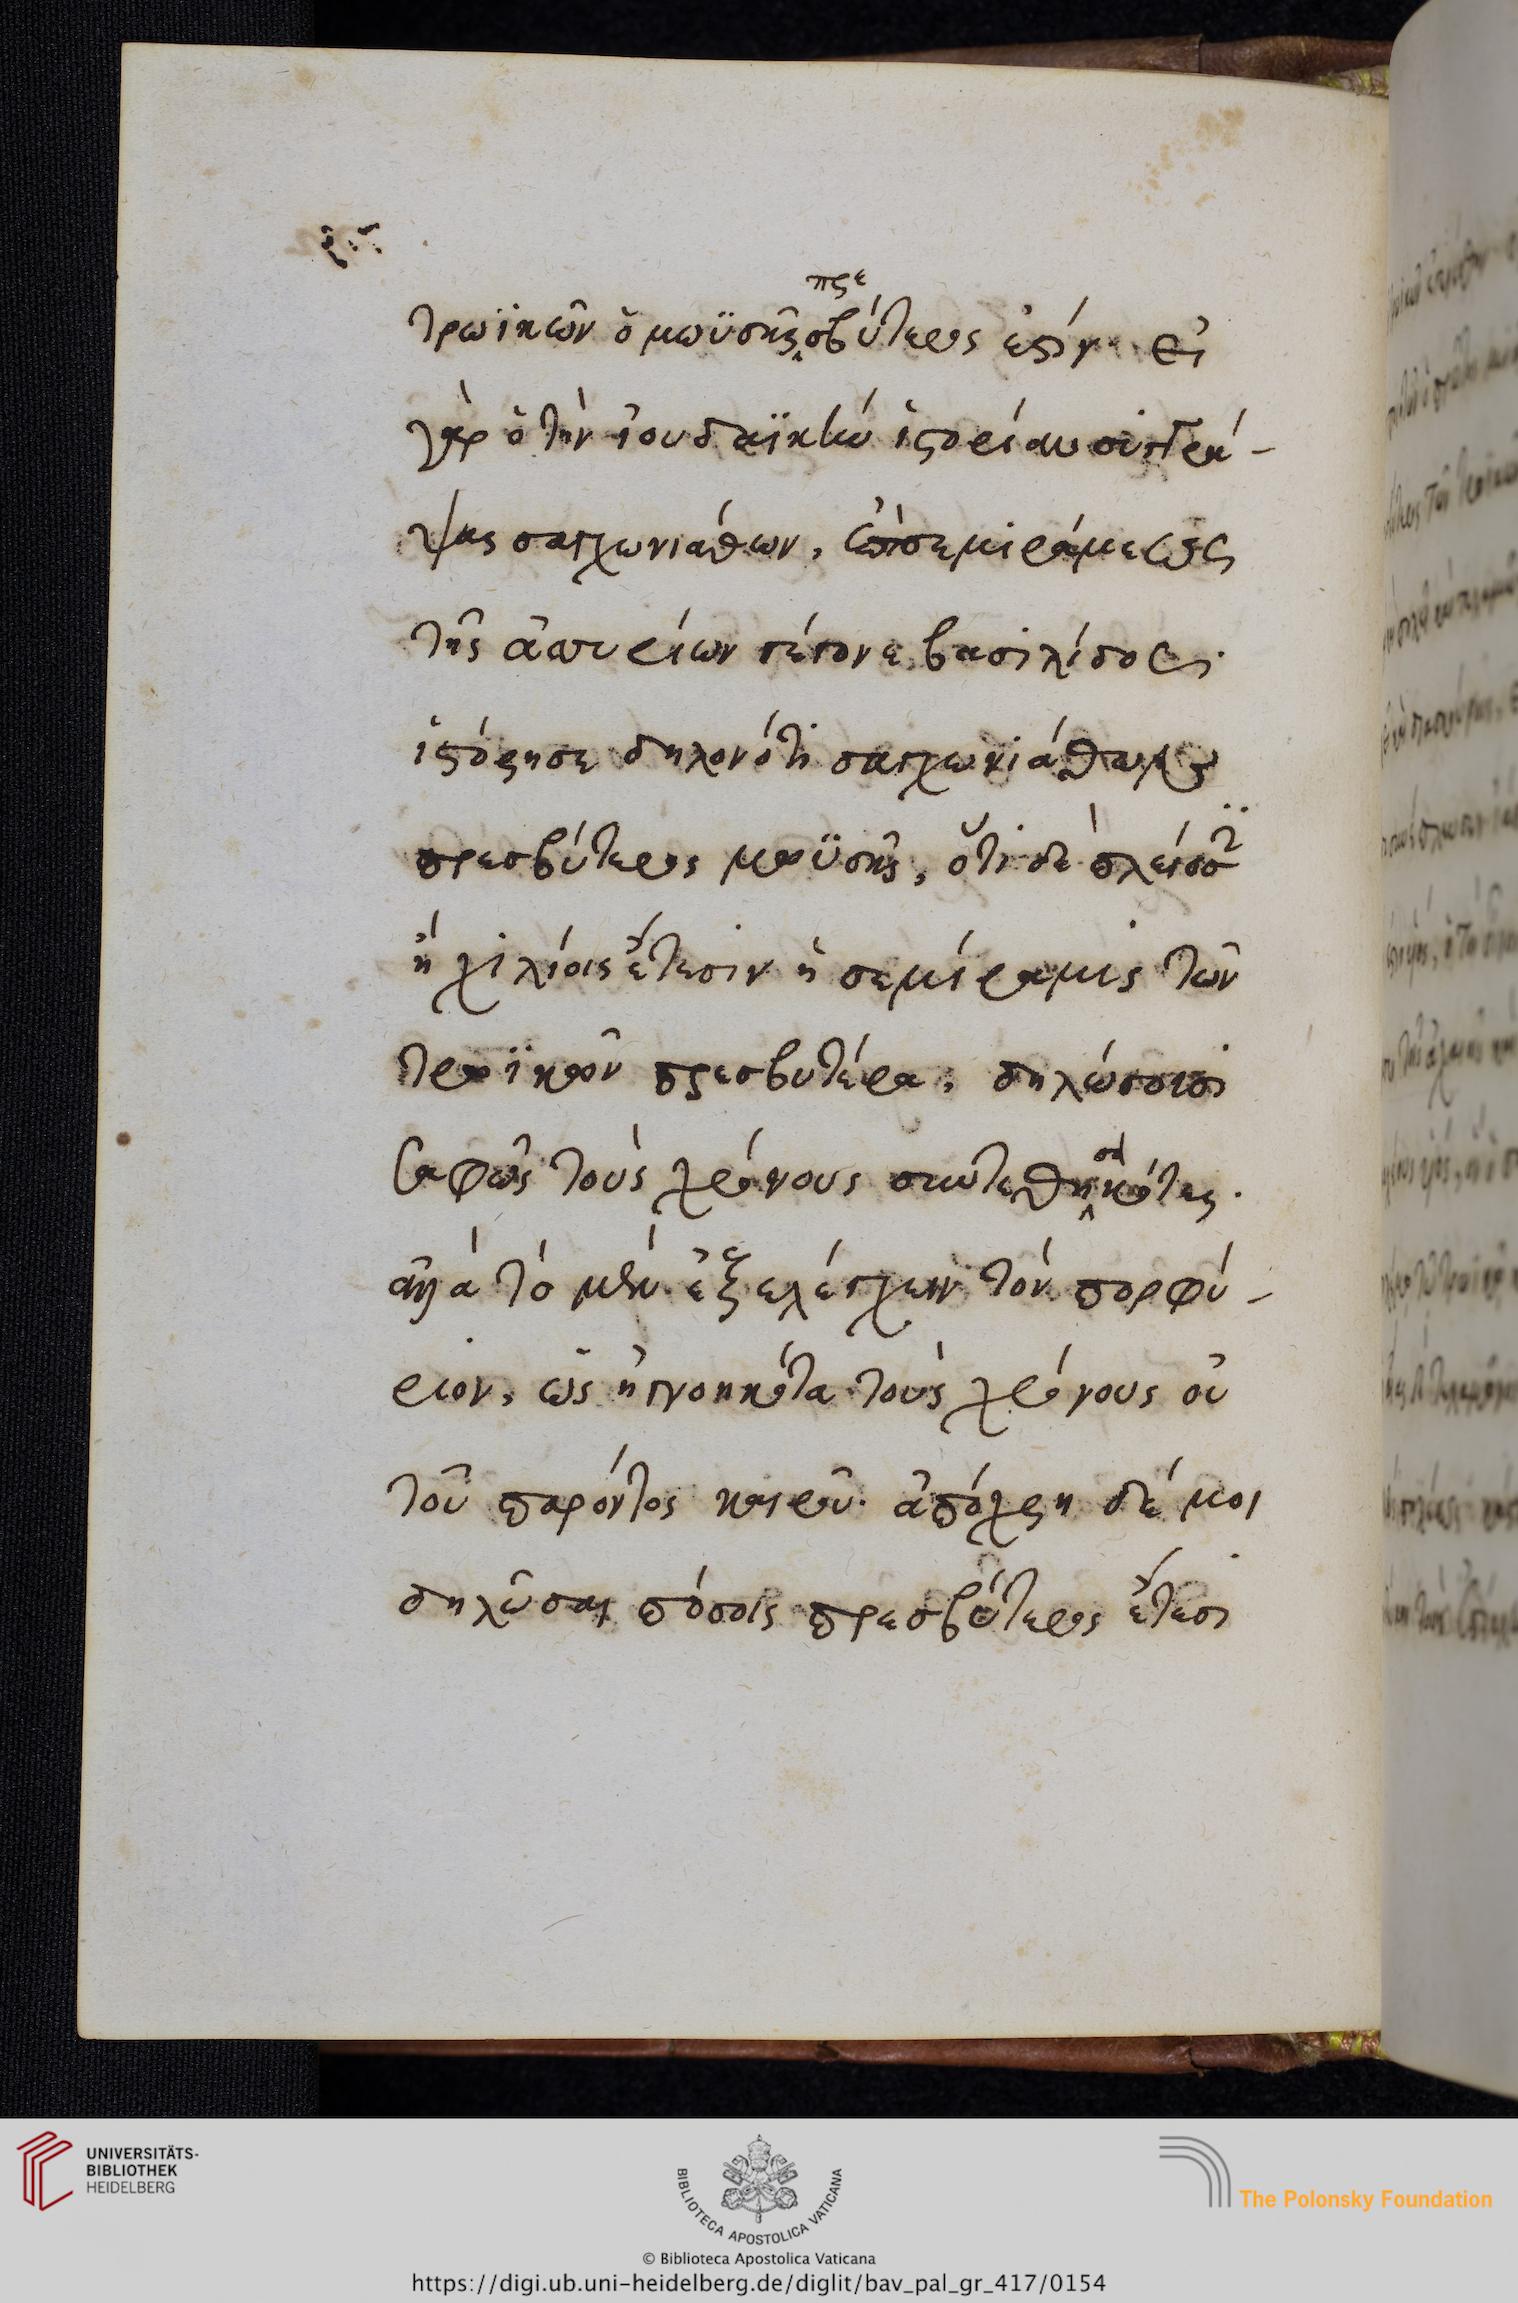 πρε
τρωϊκῶν ὁ μωϋσῆς σβύτερος ἐστίν. εἰ
γὰρ ὁ τὴν ἰουδαϊκὴν ἱστορίαν συγγρά-
ψας σαγχωνιάθων, ἐπὶ σεμιράμεως
τῆς ἀσσυρίων γέγονε βασιλίδος.
ἱστόρησε δηλονότι σαγχωνιάθωνος
πρεσβύτερος μωϋσῆς, ὅτι δὲ πλείοσιν
ἢ χιλίοις ἔτεσιν ἡ σεμίραμις τῶν
τρωϊκῶν πρεσβυτέρα, δηλώσουσι
σαφῶς τοὺς χρόνους συντεθηκότες.
ἀλλὰ τὸ μὲν ἐξελέγχειν τὸν πορφύ-
ριον, ὡς ἠγνοηκότα τοὺς χρόνους οὐ
τοῦ παρόντος καιροῦ. ἀπόχρη δέ μοι
δηλῶσαι πόσοις πρεσβύτερος ἔτεσι
UNIVERSITÄTS-
BIBLIOTHEK
HEIDELBERG
BIBLIOTECA APOSTOLICA VATICANA
The Polonsky Foundation
© Biblioteca Apostolica Vaticana
https://digi.ub.uni-heidelberg.de/diglit/bav_pal_gr_417/0154